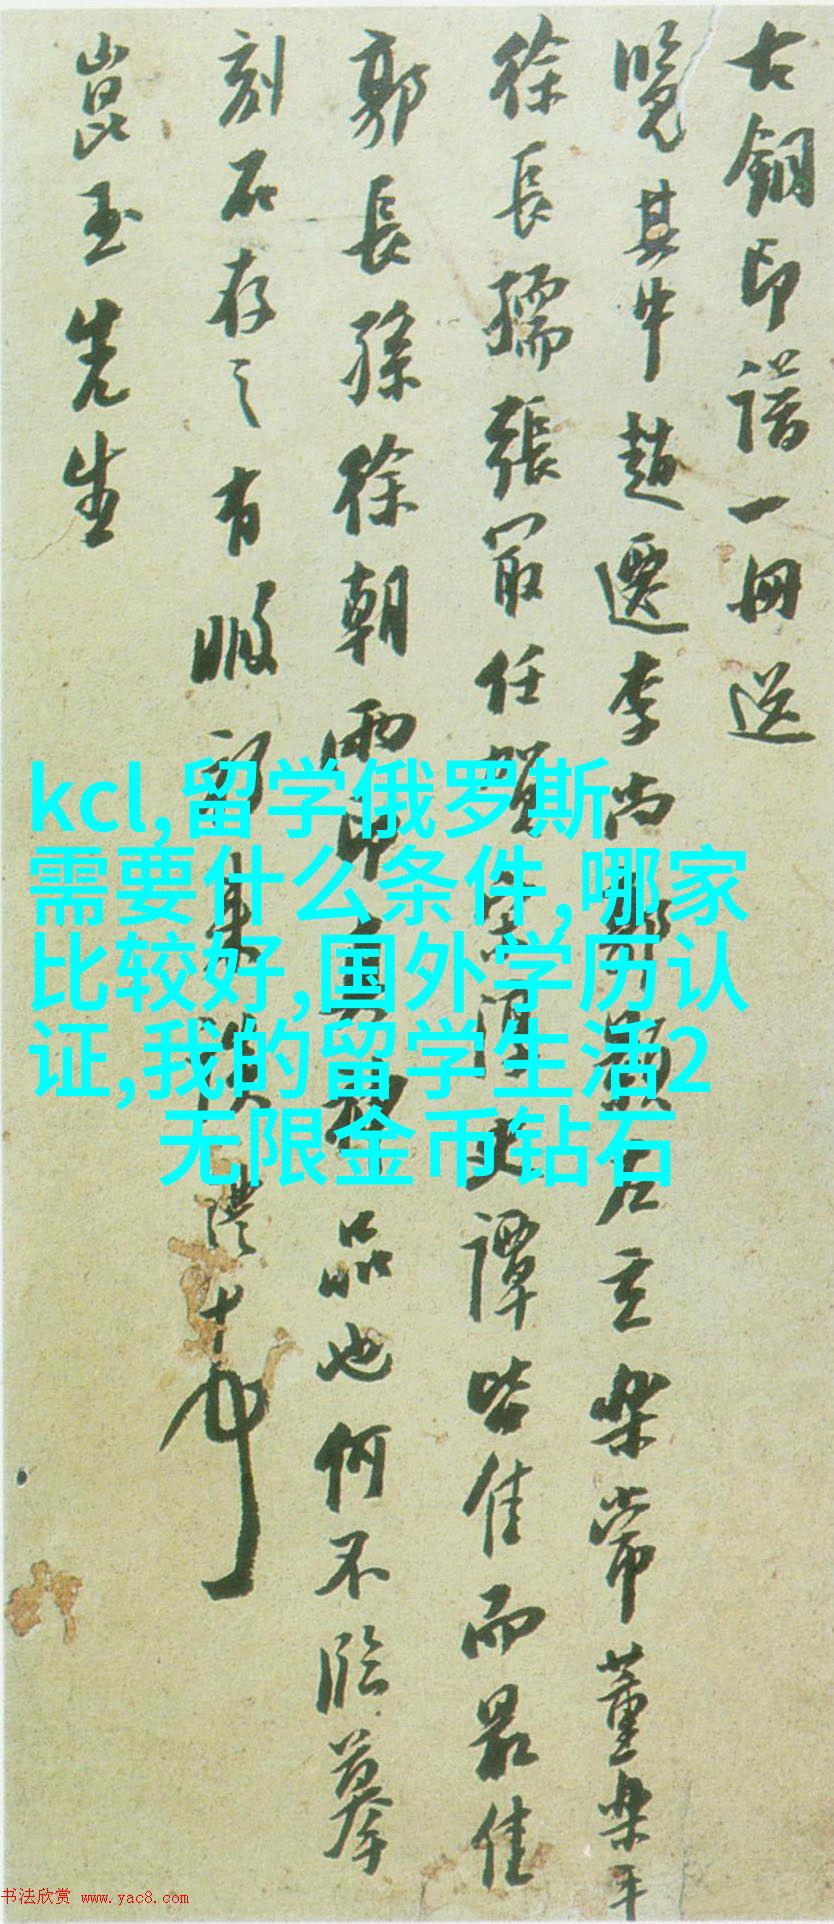 古銅印譜一冊送
覽其中趙遷李尚
左立樂常董樂平
徐長孺張寂任賀
譚皆佳而最佳
郭長孫徐朝兩印
品也何不臨摹
刻石存之有暇
崑玉先生
kcl,留学俄罗斯
需要什么条件,哪家
比较好,国外学历认
证,我的留学生活2
无限金币钻石
书法欣赏 www.yac8.com